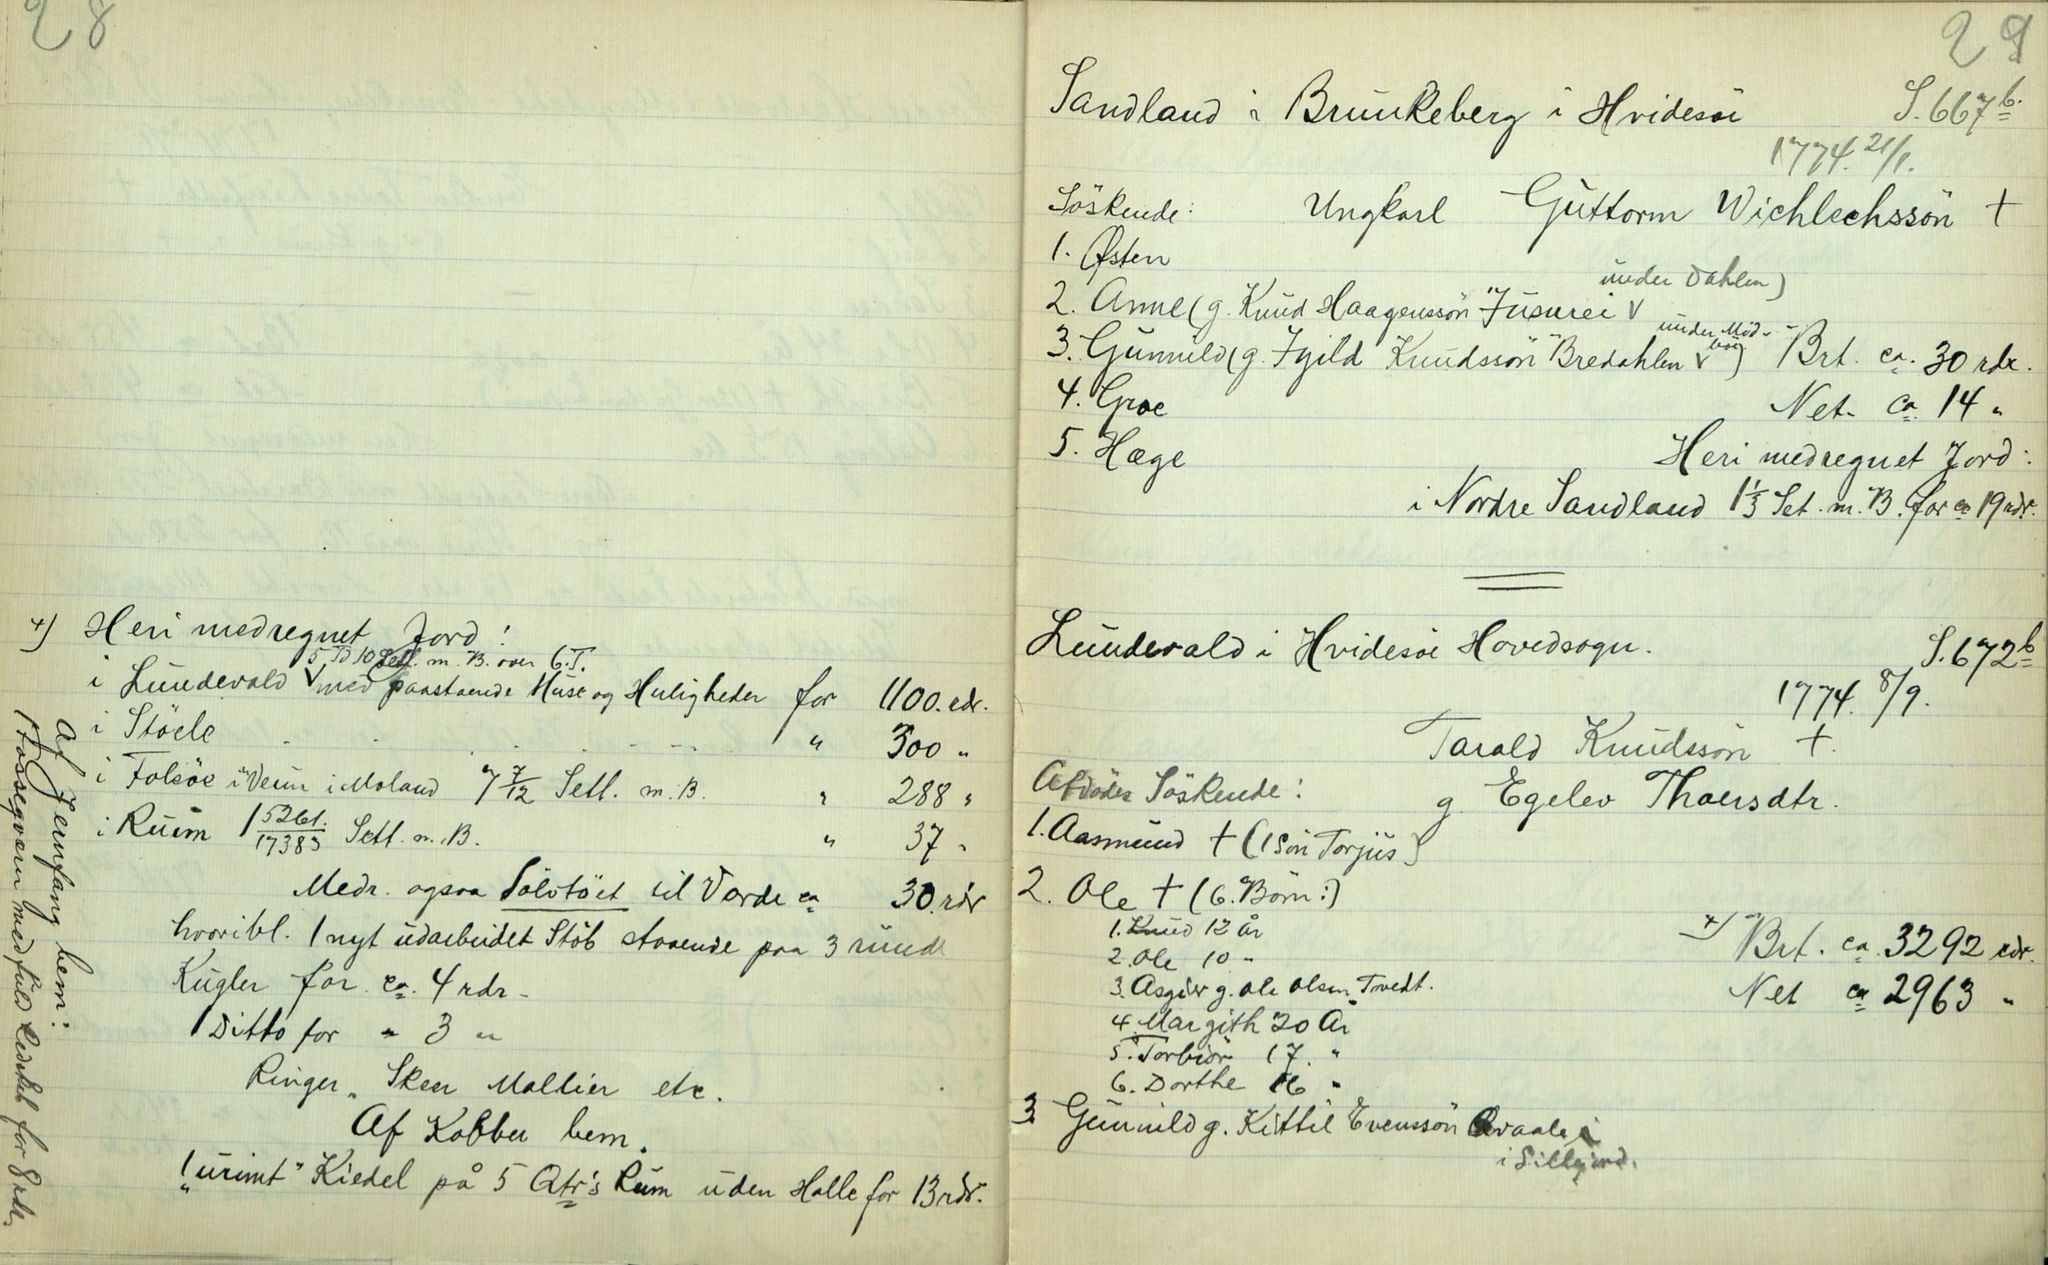 28
+) Heri medregnet Jord:
5 Td 10 Setl. m. B. over 6.T.
i Lundevald V med paastaaende Huse og Huligheder for 1100. rdr.
i Stöele " 300 "
i Folsöe i "Veum i Moland 7 7/12 Setl. m. B. " 288 "
i Ruim 1 5261/17383 Setl. m. B. " 37 "
Medr. ogsaa Sölvtöiet til Værde ca 30 rdr
hvoribl. 1 nyt udarbeidet Stöb staaende paa 3 runde
Kugler for ca. 4 rdr.
1 Ditto for " 3 "
Ringer, Skeer Mallier etc.
Af Kobber bem.
1 "urimt" Kiedel på 5 Qtr's Rum uden Halle for 13 rdr.
Af Jernfang bem:
1 Hosseqværn med fuld Redskab for 8 rdr.
29
Sandland i Brunkeberg i Hvidesöe S. 667 b.
1774. 21/1.
Söskende: Ungkarl Guttorm Wichlechssön †
1. Østen
2. Anne (g. Knud Haagenssön "Jusurei V under Dahlen)
3. Gunnild (g. Jgild Knudssön "Bredahlen V under Mod- bøe) Brt. ca. 30 rdr.
4. Groe Net- ca. 14 "
5. Hæge Heri medregnet Jord:
i Nordre Sandland 1 1/3 Set. m. B. for ca 19 rdr.
Lundevald i Hvidesöe Hovedsogn. S. 672 b
1774. 8/9.
Tarald Knudssön †.
Afdödes Söskende: g. Egelev Thoersdtr.
1. Aasmund † (1 Sön Torjus)
2. Ole † (6. Börn:)
1. Knud 12 År
2. Ole 10 "
3. Asgier g. Ole Olsen Tvedt.
4. Margith 20 År
5. Torbiör 17 "
6. Dorthe 16 "
+) Brt. ca. 3292 rdr.
Net ca 2963 "
3 Gunnild g. Kittil Evenssön Qvaale
i Sillejord.